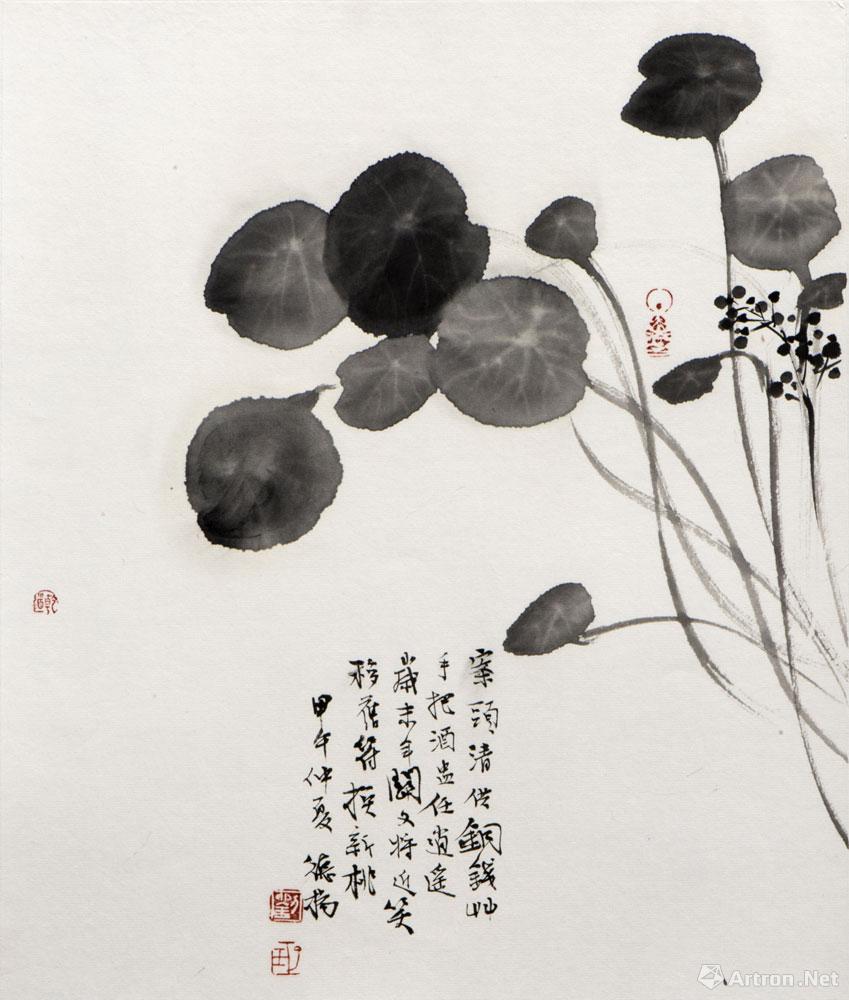 案頭清供銅錢艸
手把酒盅任逍遥
歲末年關又將近笑
移舊符換新桃
甲午仲夏 德揚
劉
Artron.Net